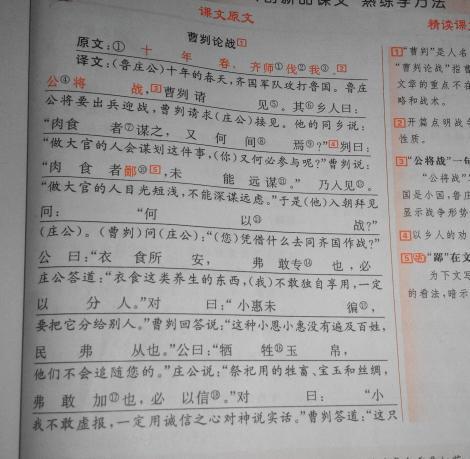 课文原文
曹刿论战①
原文:① 十 年 春,齐师①伐②我③.②
译文:(鲁庄公)十年的春天,齐国军队攻打鲁国。鲁庄
公④将 战,③曹刿 请 见⑤。其⑥乡人曰:
公将要出兵迎战,曹刿请求(庄公)接见。他的同乡说:
“肉食 者⑦谋之, 又 何 间⑧ 焉⑨?”④刿曰:
“做大官的人会谋划这件事,(你)又何必参与呢?”曹刿说:
“肉 食 者鄙⑩⑤,未 能 远谋⑪。” 乃入见⑫。
“做大官的人目光短浅,不能深谋远虑。”于是(他)入朝拜见
问: “何 以⑬ 战?”
(庄公)。(曹刿)问(庄公):“(您)凭借什么去同齐国作战?”
公 曰:“衣 食所 安, 弗 敢专⑭ 也,必
庄公答道:“衣食这类养生的东西,(我)不敢独自享用,一定
以 分 人。”对 曰:“小惠未 徧⑮,
要把它分给别人。”曹刿回答说:“这种小恩小惠没有遍及百姓,
民 弗 从也。”公曰:“牺 牲⑯玉 帛,
他们不会追随您的。”庄公说:“祭祀用的牲畜、宝玉和丝绸,
弗 敢 加⑰也,必 以信⑱。”对 曰: “小
我不敢虚报,一定用诚信之心对神说实话。”曹刿答道:“这只
精读课
①“曹刿”是人名
“曹刿论战”指曹
文章的重点不在
略和战术。
②开篇点明战争
性质。
③“公将战”一句
“公将战”
国是小国,鲁庄
显示战争形势
④以乡人的功
⑤语“鄙”在文
为下文写
的看法,暗示